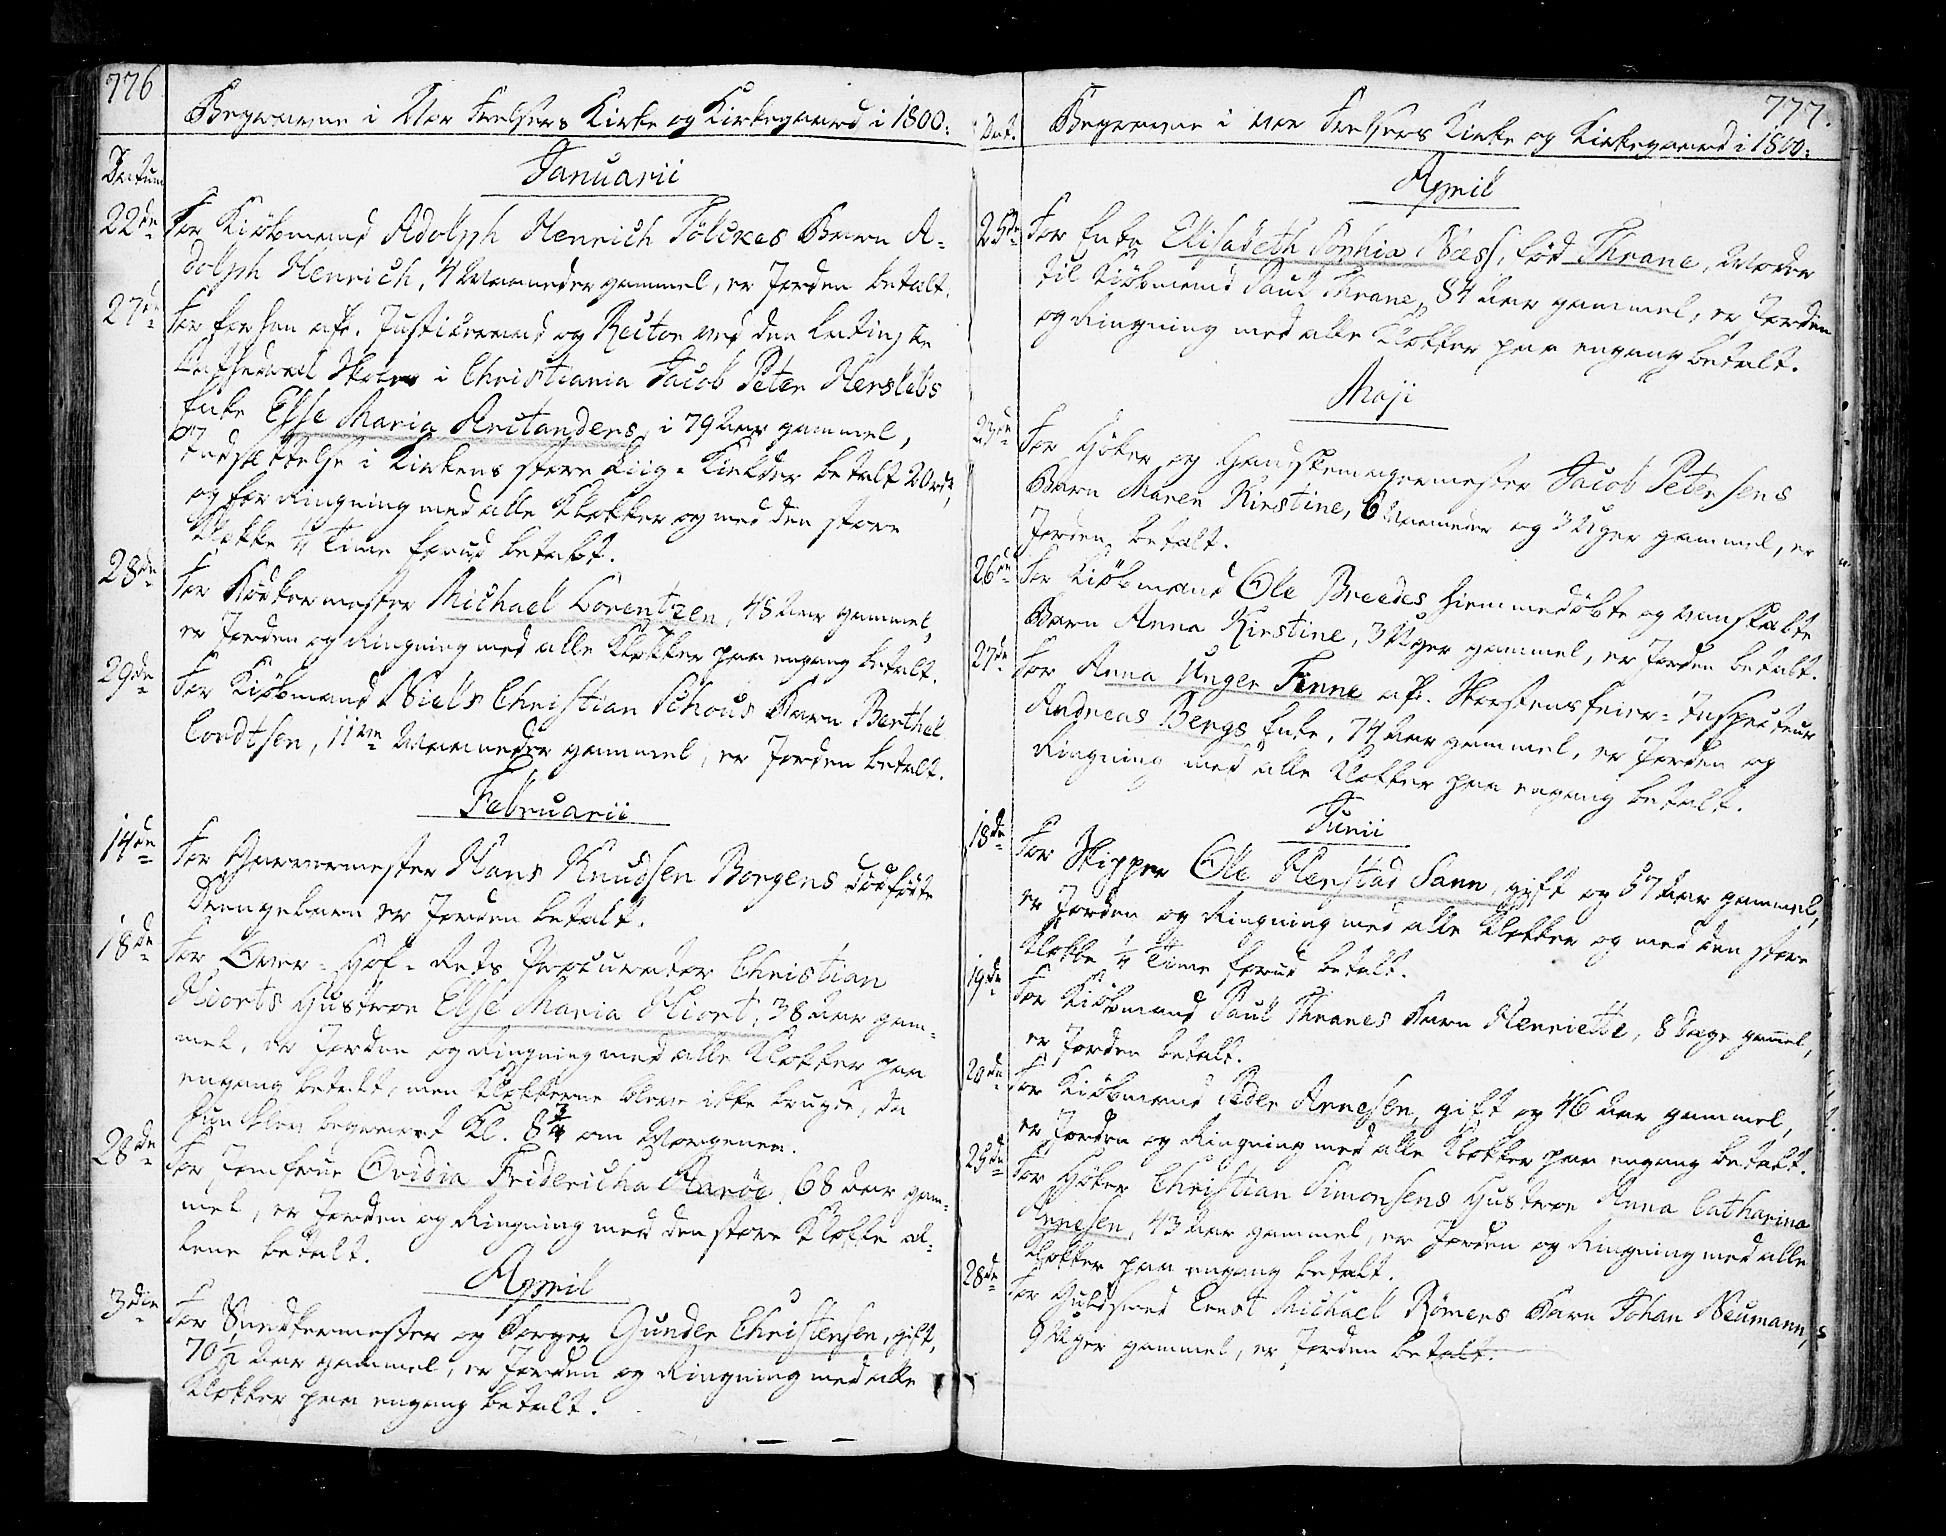 776
Begravne i Vor Frelsers Kirke og Kirkegaard i 1800.
Datum
Januarii
22de For Kiøbmand Adolph Henrich Tölckes Barn A-
dolph Henrich, 4 Maaneder gammel, er Jorden betalt.
27de For forhen afg. Justitsraad og Rector ved den Latinske
Cathedral Skole i Christiania Jacob Peter Herslebs
Enke Else Maria Arctanders, i 79 Aar gammel,
Indsættelse i Kirkens store Liig-Kielder betalt 20 rdr,
og for Ringning med alle Klokker og med den store
Klokke ¼ Time forud betalt.
28de For Bødkermester Michael Lorentzen, 48 Aar gammel,
er Jorden og Ringning med alle Klokker paa engang betalt.
29de For Kiøbmand Niels Christian Schous Barn Berthel
Cordtsen, 11 Maaneder gammel, er Jorden betalt.
Februarii
14de For Garvermester Hans Knudsen Borgens dödfödte
Drengebarn er Jorden betalt.
18de For Over-Hof-Rets Procurator Christian
Hiorts Hustroe Else Maria Hiort, 38 Aar gam-
mel, er Jorden og Ringning med alle Klokker paa
engang betalt, men Klokkerne bleve ikke brugte, da
hun blev begravet Kl. 8¾ om Morgenen.
28de For Jomfrue Ovidia Fridericha Aaröe, 68 Aar gam-
mel, er Jorden og Ringning med den store Klokke al-
lene betalt.
April
3die For Snedkermester og Borger Gunder Christensen, gift,
70½ Aar gammel, er Jorden og Ringning med alle
Klokker paa engang betalt.
777.
Dat. Begravne i vor Frelsers Kirke og Kirkegaard i 1800.
April
25de For Enke Elisabeth Sophia Næss, född Thrane, Moder
til Kiöbmand Paul Thrane, 84 Aar gammel, er Jorden
og Ringning med alle Klokker paa engang betalt.
Maji
23de For Höker og Handskemagermester Jacob Petersens
Barn Maren Kirstine, 6 Maaneder og 3 Uger gammel, er
Jorden betalt.
26de For Kiöbmand Ole Breedes hiemmedöbte og vanskabte
Barn Anna Kirstine, 3 Uger gammel, er Jorden betalt.
27de For Anna Unger Finne afg. Skorstensfeier-Inspecteur
Andreas Bergs Enke, 74 Aar gammel, er Jorden og
Ringning med alle Klokker paa engang betalt.
Junii
18de For Skipper Ole Henstad Sann, gift og 57 Aar gammel,
er Jorden og Ringning med alle Klokker og med den store
Klokke ¼ Time forud betalt.
19de For Kiöbmand Paul Thranes Barn Henriette, 8 Dage gamel,
er Jorden betalt.
20de For Kiöbmand Peder Arnesen, gift og 46 Aar gammel,
er Jorden og Ringning med alle Klokker paa engang betalt.
25de For Höker Christian Simonsens Hustroe Anna Catharina
Arnesen, 43 Aar gammel, er Jorden og Ringning med alle
Klokker paa engang betalt.
28de For Guldsmed Ernst Michael Römers Barn Johan Neumann,
8 Uger gammel, er Jorden betalt.